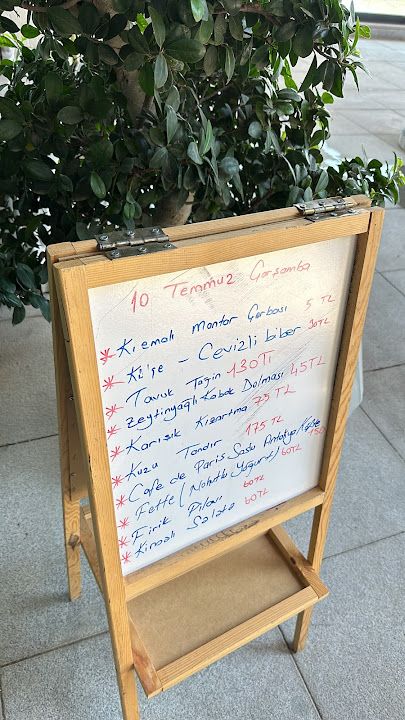 10 Temmuz Çarşamba
* Kremalı Mantar Çorbası 5 TL
* Kişe - Cevizli biber 90TL
* Tavuk Tajin 130TL
* Zeytinyağlı Kabak Dolması 45TL
* Karışık Kızartma 75 TL
* Kuzu Tandır 175 TL
* Cafe de Paris Soslu Antrikot
* Fette (Nohutlu Yoğurt) 60TL
* Firik Pilavı 60TL
* Kinoalı Salata 60TL